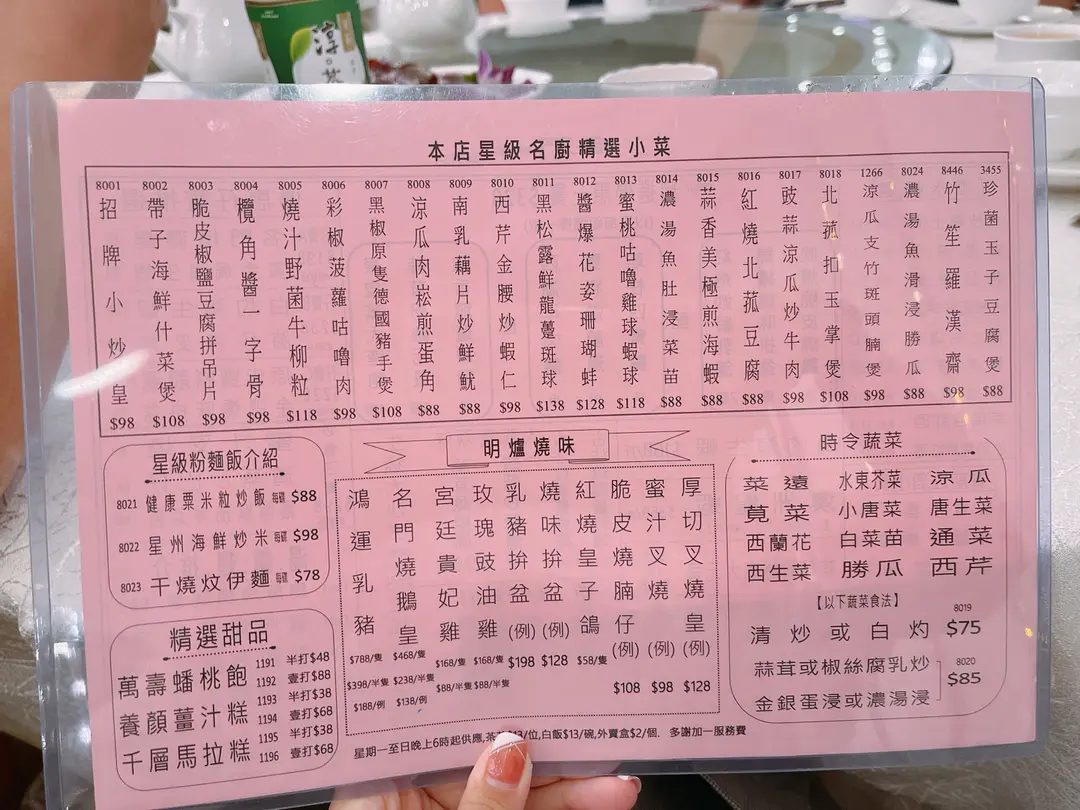 淳
茶
本店星級名廚精選小菜
8001 招牌小炒皇 $98
8002 帶子海鮮什菜煲 $108
8003 脆皮椒鹽豆腐拼吊片 $98
8004 欖角醬一字骨 $98
8005 燒汁野菌牛柳粒 $118
8006 彩椒菠蘿咕嚕肉 $98
8007 黑椒原隻德國豬手煲 $108
8008 涼瓜肉崧煎蛋角 $88
8009 南乳藕片炒鮮魷 $88
8010 西芹金腰炒蝦仁 $98
8011 黑松露鮮龍躉斑球 $138
8012 醬爆花姿珊瑚蚌 $128
8013 蜜桃咕嚕雞球蝦球 $118
8014 濃湯魚肚浸菜苗 $88
8015 蒜香美極煎海蝦 $88
8016 紅燒北菰豆腐 $88
8017 豉蒜涼瓜炒牛肉 $98
8018 北菰扣玉掌煲 $108
1266 涼瓜支竹斑頭腩煲 $98
8024 濃湯魚滑浸勝瓜 $88
8446 竹笙羅漢齋 $98
3455 珍菌玉子豆腐煲 $88
星級粉麵飯介紹
8021 健康粟米粒炒飯 每碟 $88
8022 星州海鮮炒米 每碟 $98
8023 干燒炆伊麵 每碟 $78
精選甜品
萬壽蟠桃飽 1191 半打$48
1192 壹打$88
養顏薑汁糕 1193 半打$38
1194 壹打$68
千層馬拉糕 1195 半打$38
1196 壹打$68
明爐燒味
鴻運乳豬 $788/隻 $398/半隻 $188/例
名門燒鵝皇 $468/隻 $238/半隻 $138/例
宮廷貴妃雞 $168/隻 $88/半隻
玫瑰豉油雞 $168/隻 $88/半隻
乳豬拼盆(例) $198
燒味拼盆(例) $128
紅燒皇子鴿 $58/隻
脆皮燒腩仔(例) $108
蜜汁叉燒(例) $98
厚切叉燒皇(例) $128
時令蔬菜
菜遠 水東芥菜 涼瓜
莧菜 小唐菜 唐生菜
西蘭花 白菜苗 通菜
西生菜 勝瓜 西芹
【以下蔬菜食法】
清炒或白灼 8019 $75
蒜茸或椒絲腐乳炒
金銀蛋浸或濃湯浸 8020 $85
星期一至日晚上6時起供應,茶 /位,白飯$13/碗,外賣盒$2/個. 多謝加一服務費